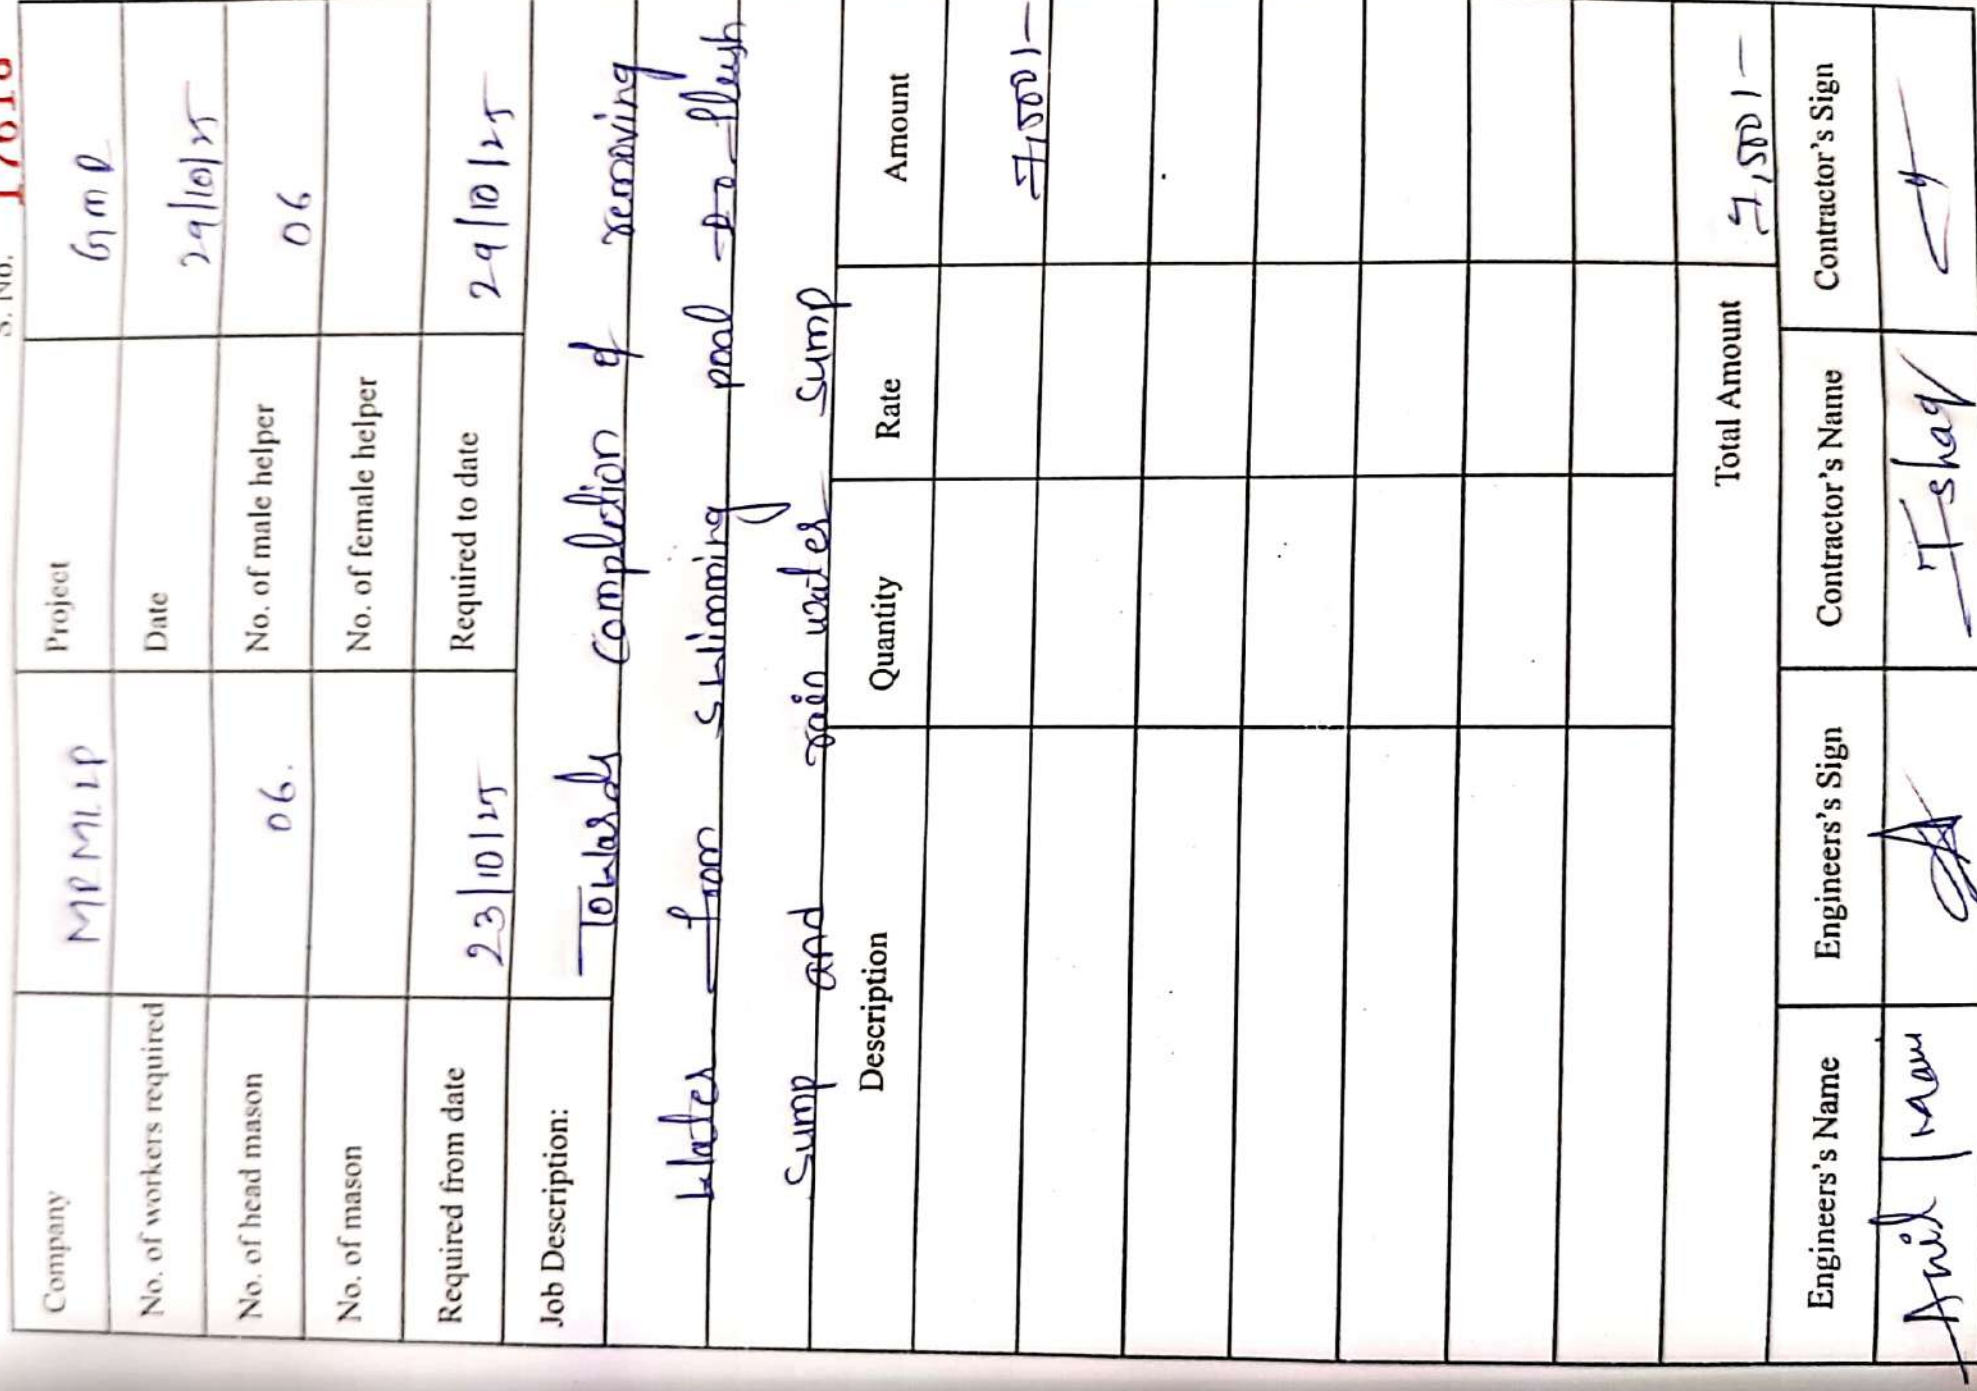 S. No.
Company MPMLLP Project GMP
No. of workers required Date 29/10/25
No. of head mason 06. No. of male helper 06
No. of mason No. of female helper
Required from date 23/10/25 Required to date 29/10/25
Job Description: Towards Completion of removing
Water from swimming pool to flush
sump and rain water sump
Description Quantity Rate Amount
7,500/-
Total Amount 7,500/-
Engineers's Name Engineers's Sign Contractor's Name Contractor's Sign
Anil Ishaq